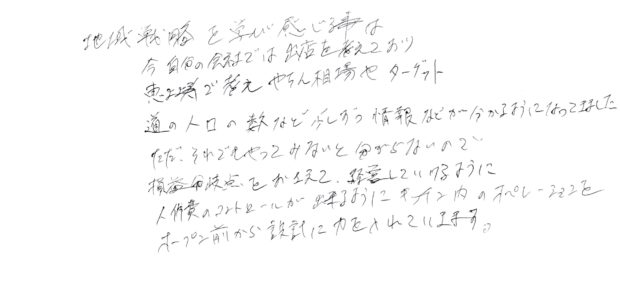 地域戦略を学び感じる事は
今自分の会社では出店を考えており
恵比寿で考え やちん相場や ターゲット
道の人口の数など少しづつ情報などが分かるようになってました
ただ、それでもやってみないと分からないので
損益分岐点をおさえて、経営していけるように
人件費のコントロールが出来るようにキッチン内のオペレーションを
オープン前から設計に力を入れています。